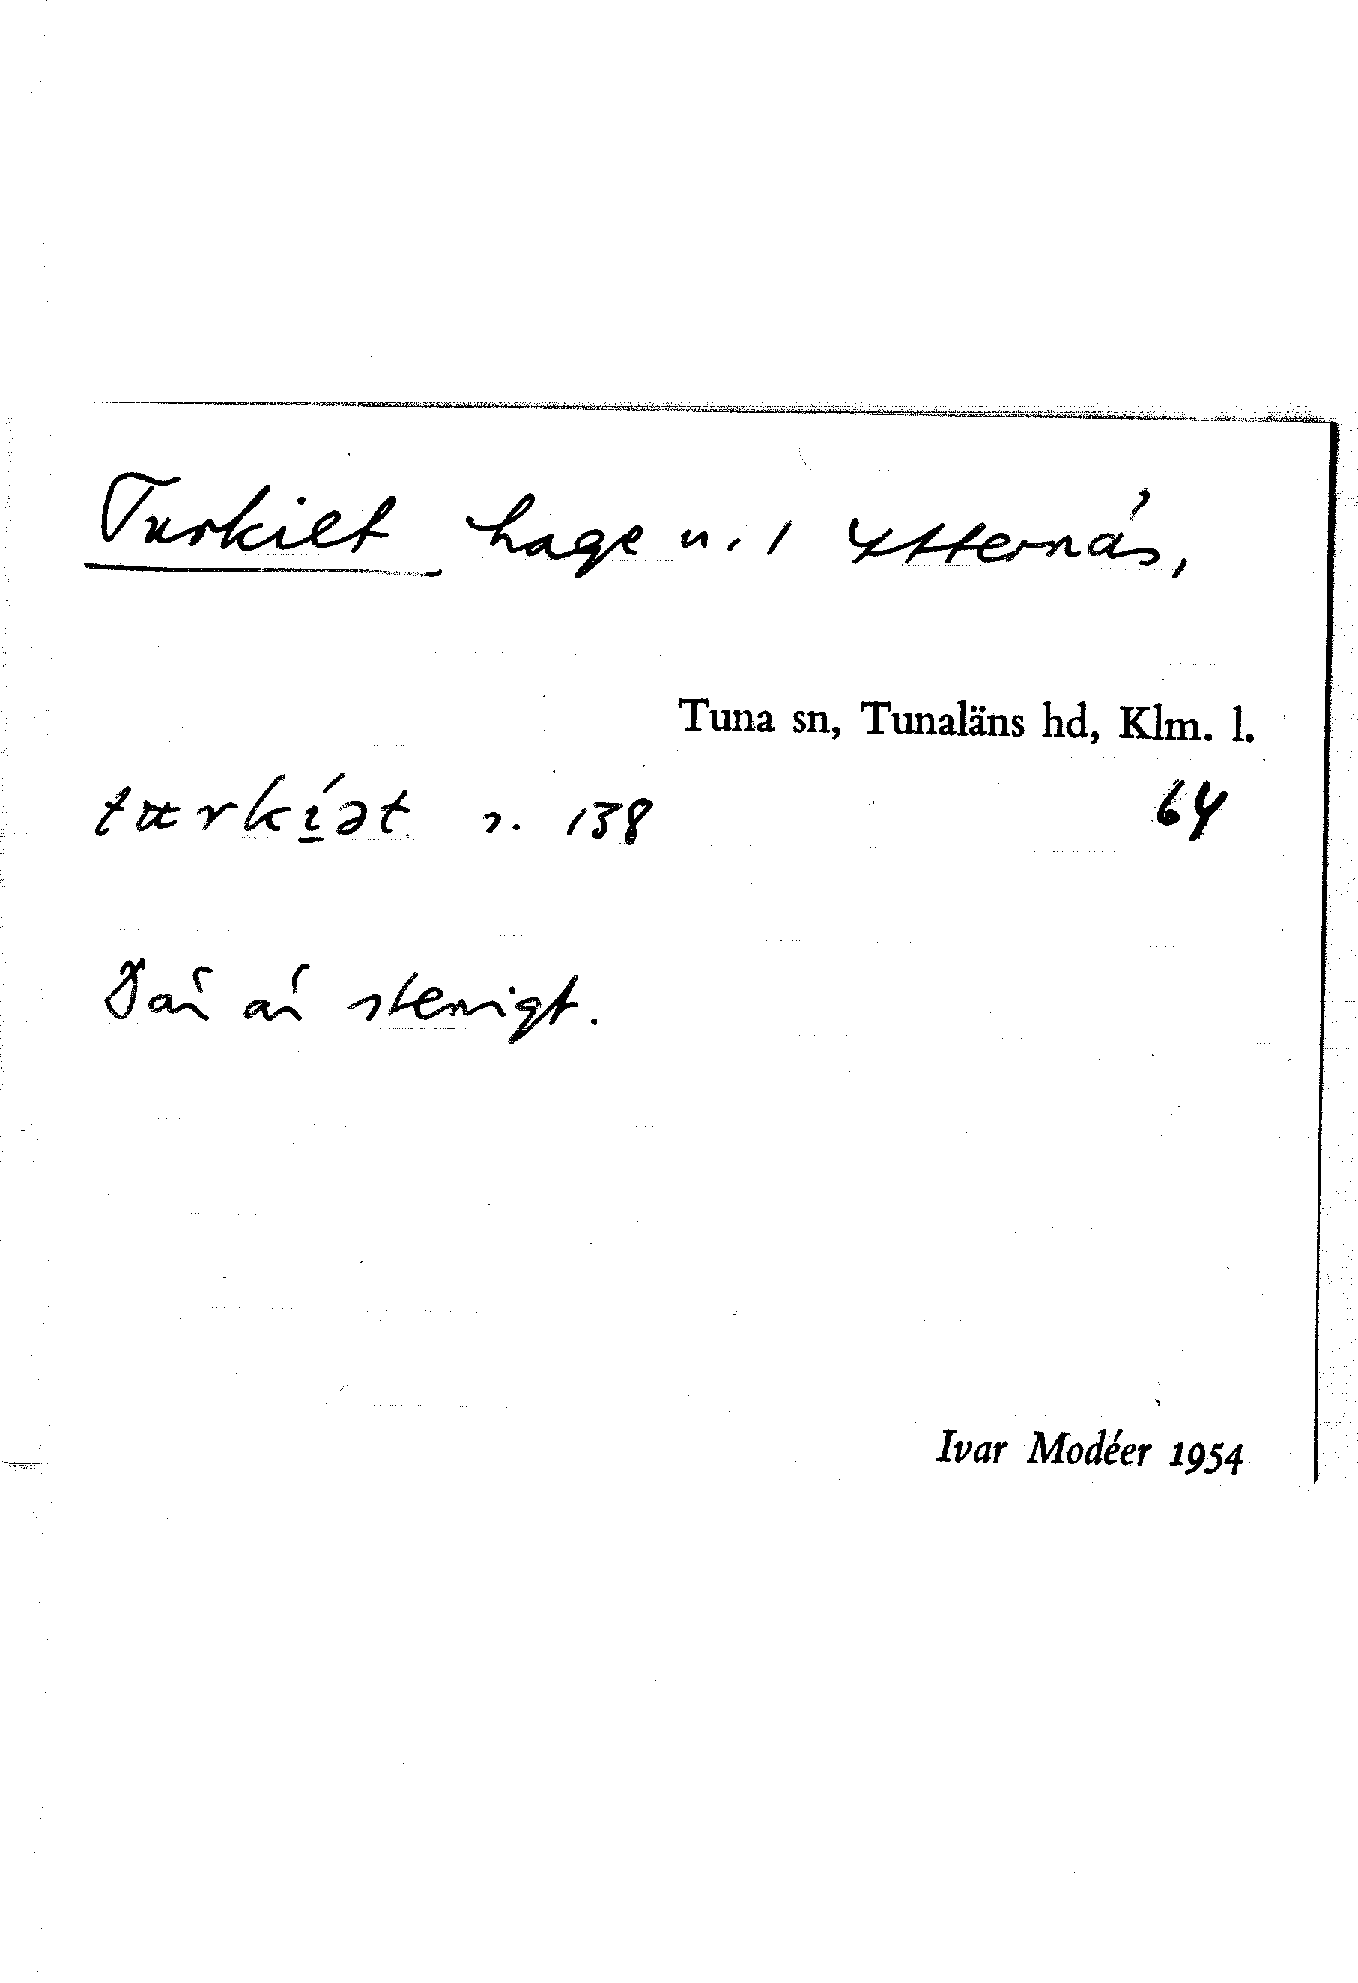 Turkiet hage u. 1 Ytternäs,
Tuna sn, Tunaläns hd, Klm. l.
tɯrkí̠ət s. 138 64
Där är stenigt.
Ivar Modéer 1954